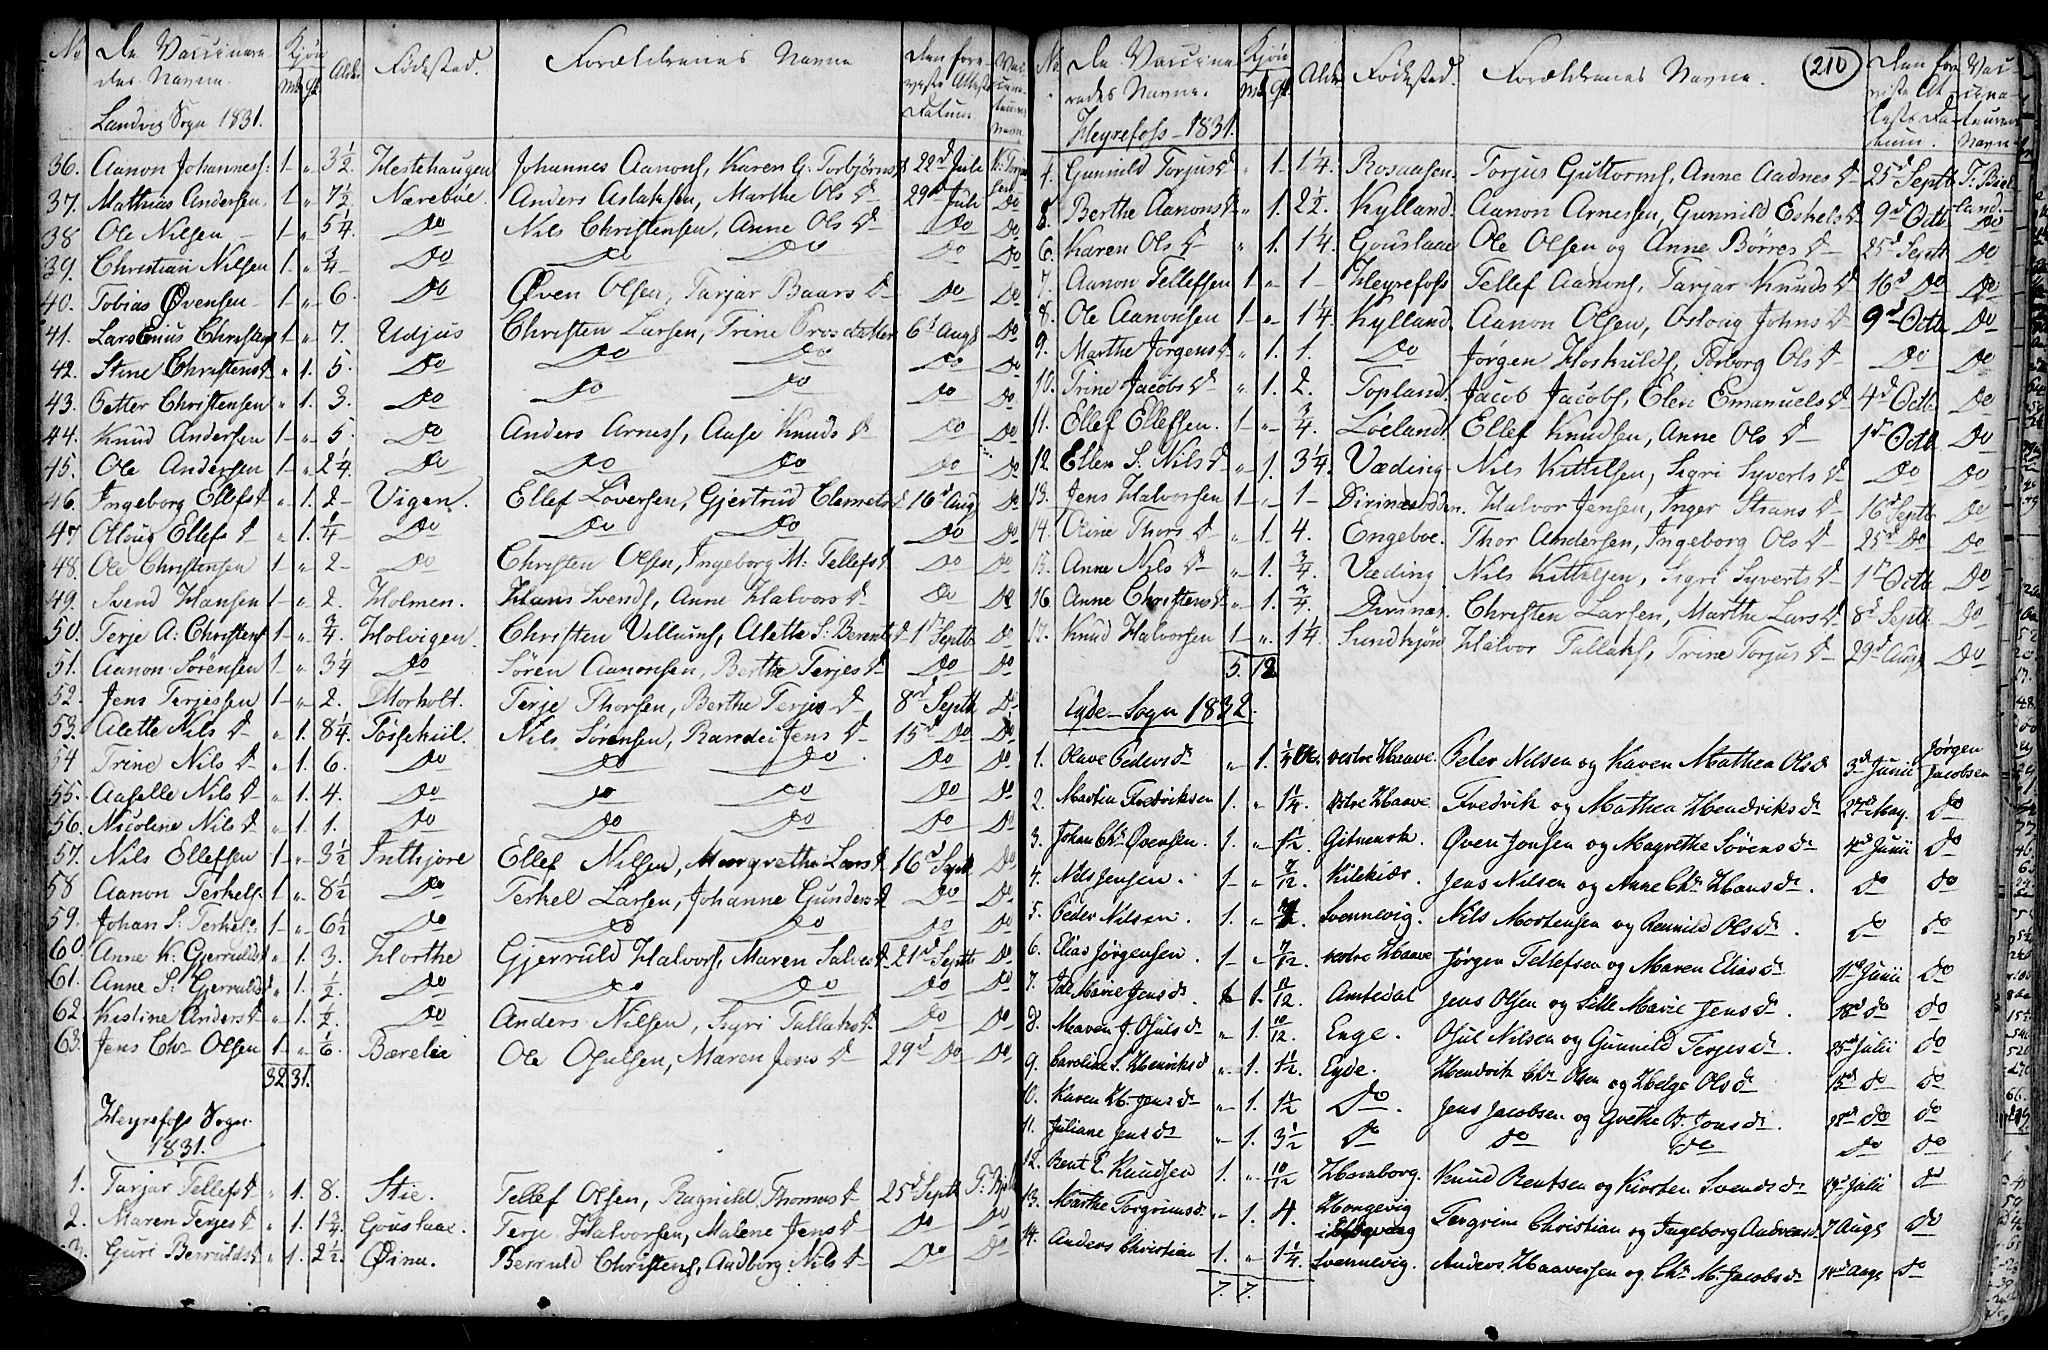 No De Vaccinere Kjøn Alder Fødested. Forældrenes Navne Den fore Vac
des Navne. Mk Qk viste Attests cina
Landvig Sogn 1831. Datum teurens Navn
36. Aanon Johanness: 1 " 3½ Hestehaugen Johannes Aanons, Karen G. Torbjørns d 22d Juli
37. Mathias Andersen. 1 " 7½ Nærebøe. Anders Aslaksen, Marthe Ols D 29d Juli Do
38 Ole Nilsen 1 " 5¼ Do Nils Christensen, Anne Ols D Do Do
39. Christian Nilsen 1 " ¾ Do Do Do Do Do
40. Tobias Øvensen 1 " 6. Do Øven Olsen, Tarjar Baars D Do Do
41. Lars Christens 1 " 7. Udjus Christen Larsen, Trine 6d Augs Do
42. Stine Christens D " 1. 5. Do Do Do Do Do
43. Petter Christensen " 1. 3. Do Do Do Do Do
44. Knud Andersen 1 " 5. Do Anders Arness, Aase Knuds D Do Do
45. Ole Andersen 1 " 2¼ Do Do Do Do Do
46. Ingeborg Ellefs D " 1. 2 Vigen. Ellef Løversen, Gjertrud Clemets D 16d Augs Do
47 Ellefs D " 1. ¼ Do Do Do Do Do
48. Ole Christensen 1 " 2 Do Christen Olsen, Ingeborg M. Tellefs D Do Do
49. Svend Hansen 1 " 2. Holmen. Hans Svends, Anne Halvors D Do Do
50. Terje A: Christens 1 " ¾. Holvigen. Christen Villums, Alette S. Bernts D 1d Septb Do
51. Aanon Sørensen 1 " 3¼ Do Søren Aanonsen, Berthe Terjes D Do Do
52. Jens Terjessen 1 " 2. Morholt. Terje Thorsen, Berthe Terjes D 8d Septb Do
53. Alette Nils D " 1. 8¼. Fossekiil. Nils Sørensen, Randei Jens D 15d Do Do
54 Trine Nils D " 1. 6. Do Do Do Do Do
55. Aaselle Nils D " 1. 4. Do Do Do Do Do
56. Nicoline Nils D " 1. 1. Do Do Do Do Do
57. Nils Ellefsen 1 " 3½ Inthjore Ellef Nilsen, Margrethe Lars D 16d Septb Do
58 Aanon Terkels. 1 " 8½ Do Terkel Larsen, Johanne Gunders D Do Do
59. Johan S. Terkels. 1 " 6½ Do Do Do Do Do
60. Anne K. Gjerrulds D " 1. 3. Horthe Gjerruld Halvors, Maren Salves D 21d Septb Do
61. Anne S. Gjerrulds D " 1. ½. Do Do Do Do Do
62 Kistine Anders D " 1. ½. Do Anders Nilsen, Sigri Tallaks D Do Do
63. Jens Chr. Olsen 1 " 1/6. Bærelie Ole Osulsen, Maren Jens D 29d Do Do
32 31.
Heyrefoss Sogn
1831.
1. Tarjar Tellefs D " 1. 8. Stie. Tellef Olsen, Ragnild Thomas D 25d Septb
2. Maren Terjes D " 1. 1¾. Gouslaae. Terje Halvorsen, Malene Jens D Do Do
3. Guri Berrulds D " 1. 2½. Øinæ. Berruld Christens, Audborg Nils D Do Do
No De Vaccine Kjøn Alder Fødested. Forældrenes Navne. 210 Den fore Vac
redes Navne. Mk Qk viste At cina
Heyrefoss 1831. tests Da teurens
tum. Navn
4. Gunnild Torjus D " 1. 1¼. Rosaasen. Torjus Guttorms, Anne Aadnes D 25d Septb
5. Berthe Aanons D " 1. 2½. Kylland. Aanon Arnessen, Gunnild Eskels D 9d Octb Do
6. Karen Ols D " 1. 1¼ Gouslaae Ole Olsen og Anne Børres D 25d Septb Do
7. Aanon Tellefsen 1 " 1 Heyrefoss Tellef Aanons, Tarjar Knuds D 16d Do Do
8. Ole Aanonsen 1 " 1¼. Kylland. Aanon Olsen, Johns D 9d Octb Do
9. Marthe Jørgens D " 1. 1. Do Jørgen Hoskulds, Torborg Ols D Do Do
10. Trine Jacobs D " 1. 2. Topland. Jacob Jacobs, Elen Emanuels D 4d Octb Do
11. Ellef Ellefsen. 1 " ¾. Løeland. Ellef Knudsen, Anne Ols D 1d Octb Do
12 Ellen S. Nils D " 1. 3¼. Væding. Nils Kittilsen, Sigri Syverts D Do Do
13. Jens Halvorsen 1 " 1 Halvor Jensen, Inger D 16d Septb Do
14. Oline Thors D " 1 4. Engeboe. Thor Andersen, Ingeborg Ols D 25d Do Do
15. Anne Nils D " 1. ¾. Væding Nils Kittilsen, Sigri Syverts D 1d Octb Do
16 Anne Christens D " 1. ¾. Christen Larsen, Marthe Lars D 8d Septb Do
17. Knud Halvorsen 1 " 1¼ Sundhjøn Halvor Tallaks, Trine Torjus D 29d Augs Do
5. 12
Eyde Sogn 1832.
1. Olave Peders D " 1. vestre Haave. Peter Nilsen og Karen Mathea Ols D 3d Junii Jørgen Jacobsen
2. Martin Fredriksen 1. " 1¼. østre Haave. Fredrik og Mathea Hendriks D May. Do
3. Johan Chr. Øvensen. 1. " 1½. Gitmark. Øven Jonsen og Magrethe Sørens D Junii Do
4. Nils Jensen. 1 " 7/12. Kilekiær. Jens Nilsen og Anne Chr. Hans D. Do Do
5. Peder Nilsen. 1. " Svennevig. Nils Mortensen og Rennild Ols D. Do Do
6. Elias Jørgensen. 1 " 7/12. vestre Haave Jørgen Tellefsen og Maren Elias D. Junii Do
7. Marie Jens D. 1. 11/12. Amtedal Jens Olsen og Sille Marie Jens D. 18d Do Do
8. Maren J. Osuls D " 1. 10/12. Enge. Osul Nilsen og Gunnild Terjes D. 25d Julii Do
9. Caroline S. Henriks D " 1. 1½. Eyde. Hendrik Chr. Olsen og Helge Ols D. 15d Do Do
10. Karen H. Jens D " 1. 1½ Do. Jens Jacobsen og Grethe B. Jens D. Do Do
11. Juliane Jens D " 1. 3½ Do Do Do Do Do
12. Bent E. Knudsen 1. " 10/12 Homborg. Knud Bentsen og Kirsten Svends D Julii Do
13. Marthe Torgrims D " 1. 4. Hongevig Torgrim Christian og Ingeborg Andreas D 7 Augs Do
14. Anders Christian 1. " 1¼. Svennevig. Anders Haaversen og Chr. M. Jacobs D 14d Augs Do
7. 7.